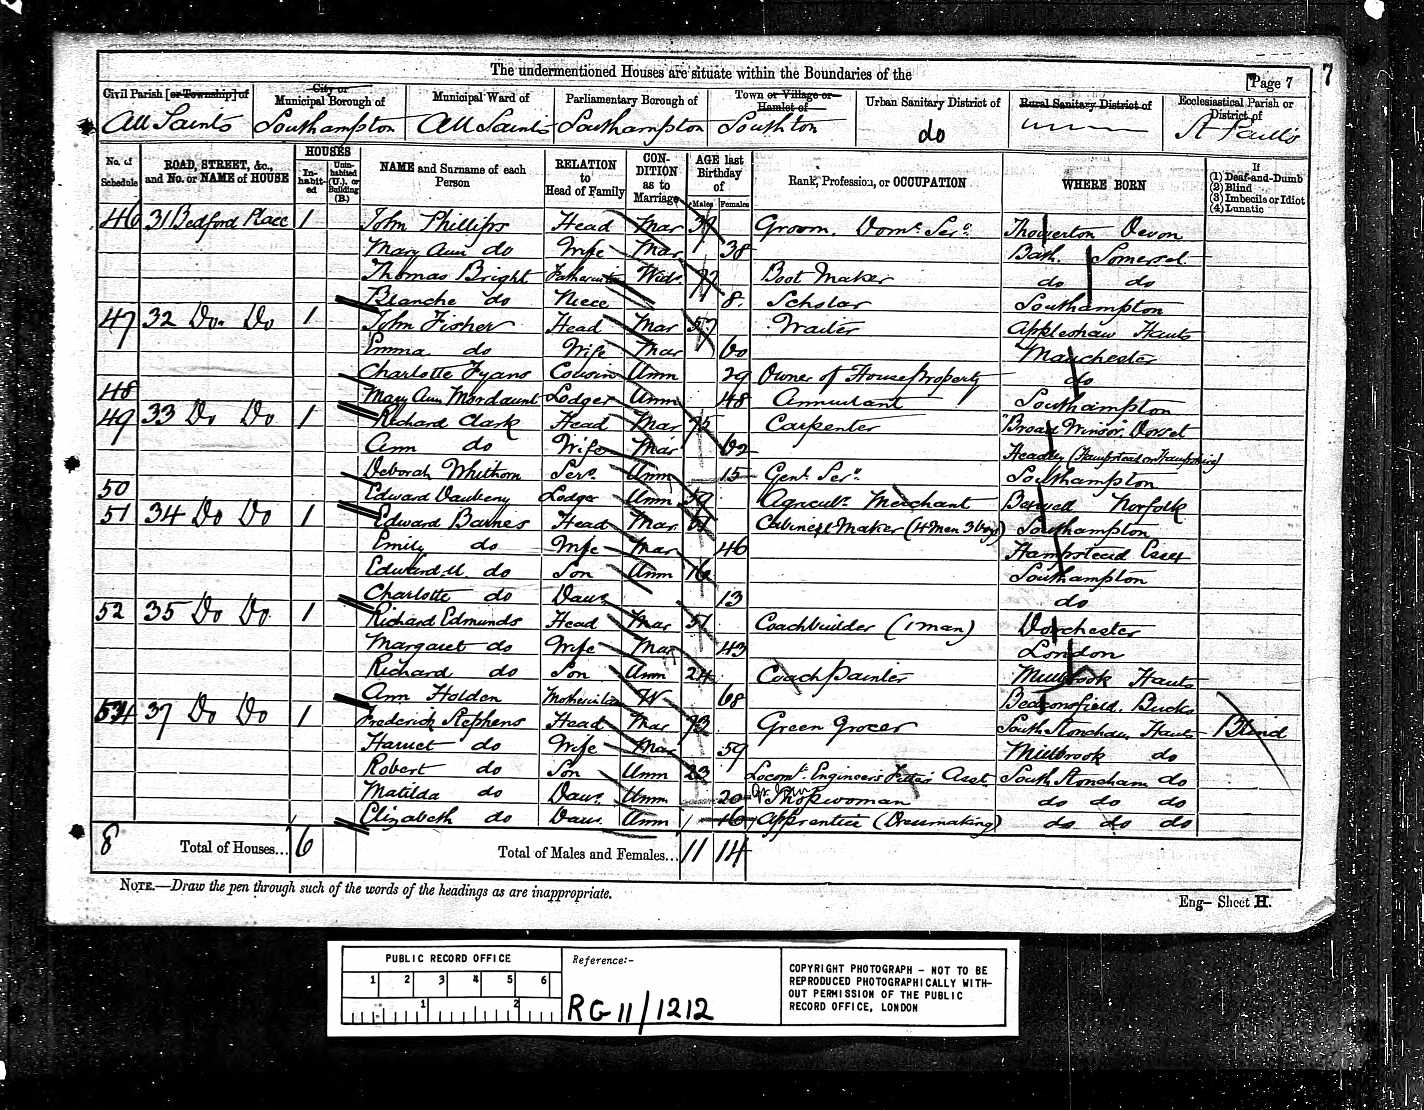 The undermentioned Houses are situate within the Boundaries of the
[Page 7
7
Civil Parish [or Township] of
City or Municipal Borough of
Municipal Ward of
Parliamentary Borough of
Town or Village or Hamlet of
Urban Sanitary District of
Rural Sanitary District of
Ecclesiastical Parish or District of
All Saints Southampton All Saints Southampton Southton do St Paul's
No. of Schedule
ROAD, STREET, &c., and No. or NAME of HOUSE
HOUSES
In-habit-ed
Unin-habited (U.), or Building (B.)
NAME and Surname of each Person
RELATION to Head of Family
CON-DITION as to Marriage
AGE last Birthday of
Males Females
Rank, Profession, or OCCUPATION
WHERE BORN
If
(1) Deaf-and-Dumb
(2) Blind
(3) Imbecile or Idiot
(4) Lunatic
46 31 Bedford Place 1 John Phillips Head Mar 39 Groom. Domc. Sero. Thorverton Devon
Mary Ann do Wife Mar 38 Bath. Somerset
Thomas Bright Fatherinlaw Widr. 72 Boot Maker do do
Blanche do Niece 8. Scholar Southampton
47 32 Do. Do 1 John Fisher Head Mar 57 Waiter Appleshaw Hants
Emma do Wife Mar 60 Manchester
Charlotte Fyans Cousin Unm 29 Owner of House Property do
48 Mary Ann Mordaunt Lodger Unm 48 Annuitant Southampton
49 33 Do Do 1 Richard Clark Head Mar 72 Carpenter Broad Winsor. Dorset
Ann do Wife Mar 62 Headly
Deborah Whithorn Sero. Unm 15 Genl. Sero. Southampton
50 Edward Daubeny Lodger Unm 59 Agricult. Merchant Norfolk
51 34 Do Do 1 Edward Barnes Head Mar. 61 Cabinet Maker (4 Men 3 boys) Southampton
Emily do Wife Mar 46 Hampstead Essex
Edward. U. do Son Unm 16 Southampton
Charlotte do Daur. 13 do
52 35 Do Do 1 Richard Edmunds Head Mar 51 Coachbuilder (1 man) Dorchester
Margaret do Wife Mar 43 London
Richard do Son Unm 24 Coach Painter Millbrook Hants
Ann Holden Motherinlaw W 68 Beaconsfield. Bucks
54 37 Do Do 1 Frederick Stephens Head Mar 73 Green Grocer South Stoneham Hants Blind
Harriet do Wife Mar 59 Millbrook do
Robert do Son Unm 23 Locomt. Engineers Fitter Asst South Stoneham do
Matilda do Daur. Unm 20 Shopwoman do do do
Elizabeth do Daur. Unm 16 Apprentice (Dressmaking) do do do
8 Total of Houses... 6 Total of Males and Females... 11 14
NOTE.—Draw the pen through such of the words of the headings as are inappropriate.
Eng— Sheet H.
PUBLIC RECORD OFFICE
1 2 3 4 5 6
1 2
Reference:-
RG 11/1212
COPYRIGHT PHOTOGRAPH - NOT TO BE
REPRODUCED PHOTOGRAPHICALLY WITH-
OUT PERMISSION OF THE PUBLIC
RECORD OFFICE, LONDON